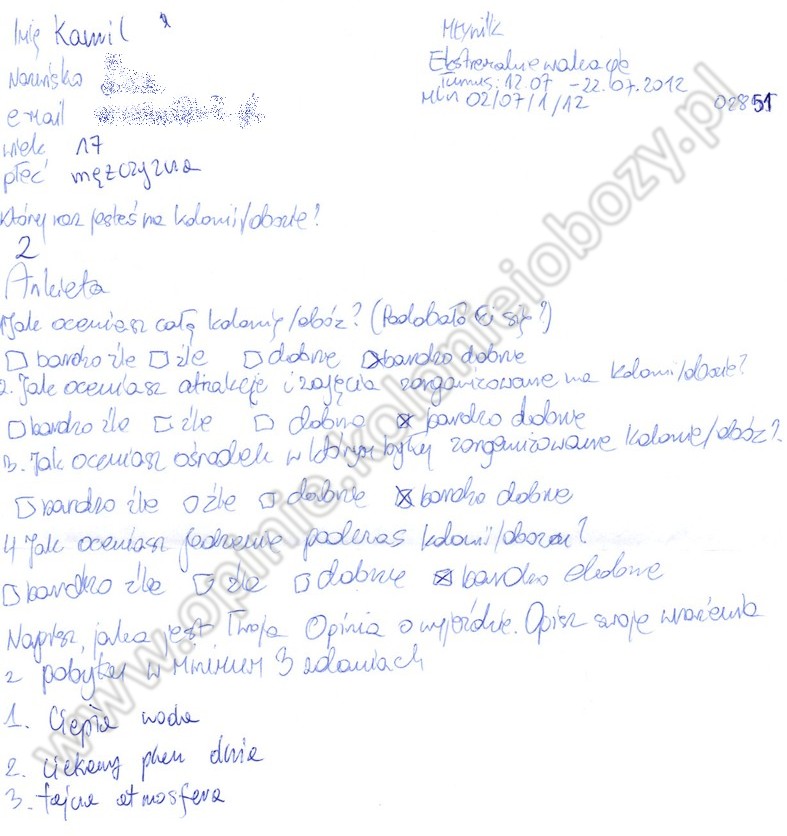 Imię Kamil
Nazwiska
e mail
wiek 17
płeć mężczyzna
Młynik
Ekstremalne wakacje
Turnus: 12.07 - 22.07.2012
Młn 02/07/1/12
02851
Który raz jesteś na kolonii/obozie?
2
Ankieta
1. Jak oceniasz całą kolonię/obóz? (Podobało Ci się?)
□ bardzo źle □ źle □ dobrze ☒ bardzo dobrze
2. Jak oceniasz atrakcje i zajęcia zorganizowane na kolonii/obozie?
□ bardzo źle □ źle □ dobrze ☒ bardzo dobrze
3. Jak oceniasz ośrodek w którym były zorganizowane kolonie/obóz?
□ bardzo źle □ źle □ dobrze ☒ bardzo dobrze
4 Jak oceniasz jedzenie podczas kolonii/obozu?
□ bardzo źle □ źle □ dobrze ☒ bardzo dobrze
Napisz, jaka jest Twoja Opinia o wyjeździe. Opisz swoje wrażenia
z pobytu w minimum 3 zdaniach
1. Ciepła woda
2. ciekawy plan dnia
3. fajna atmosfera
www.opinie.kolonieiobozy.pl